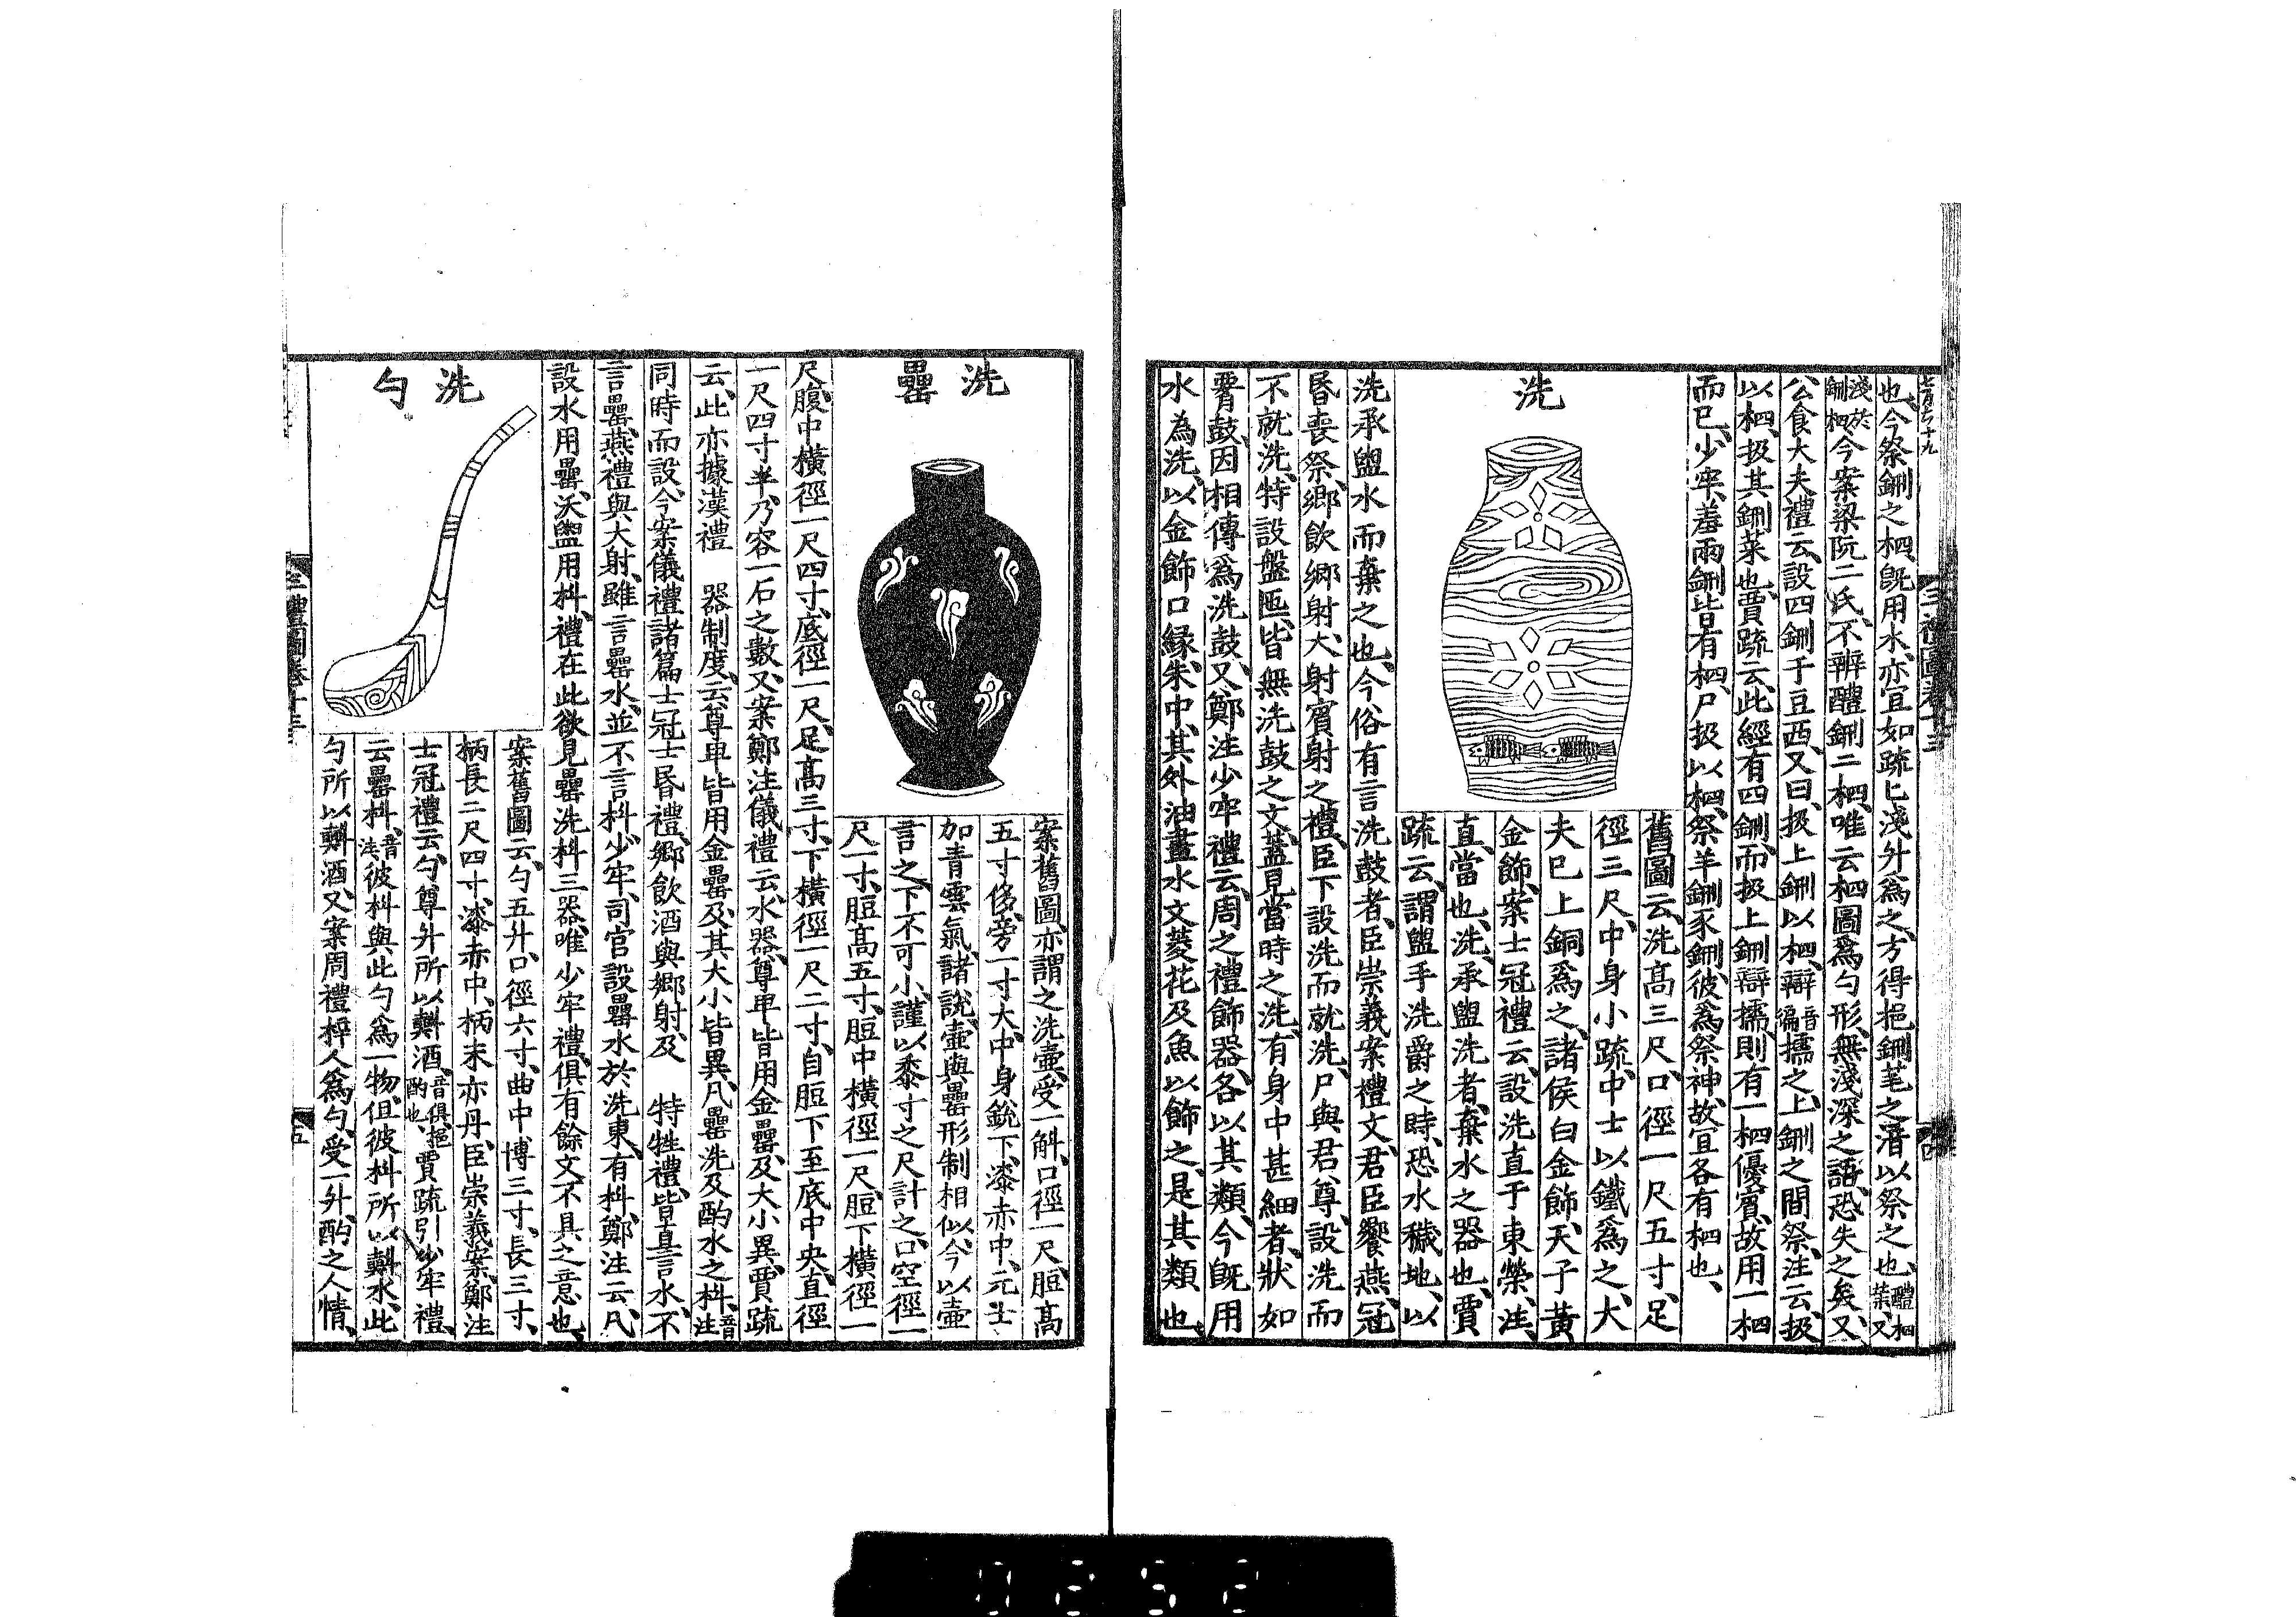 也今祭鉶之柶旣用水亦宜如䟽匕淺升爲之方得挹鉶芼之湆以祭之也醴柶葉又
淺於鉶柶今案梁阮二氏不辨醴鉶二柶唯云柶圖爲勺形無淺深之語恐失之矣又
公食大夫禮云設四鉶于豆西又曰扱上鉶以柶辯音徧擩之上鉶之間祭注云扱
以柶扱其鉶菜也賈䟽云此經有四鉶而扱上鉶辯擩則有一柶優賓故用一柶
而已少牢羞兩鉶皆有柶尸扱以柶祭羊鉶豕鉶彼爲祭神故宜各有柶也
洗
舊圖云洗髙三尺口徑一尺五寸足
徑三尺中身小䟽中士以鐵爲之大
夫已上銅爲之諸侯白金飾天子黃
金飾案士冠禮云設洗直于東榮注
直當也洗承盥洗者棄水之器也賈
䟽云謂盥手洗爵之時恐水穢地以
洗承盥水而棄之也今俗有言洗鼓者臣崇義案禮文君臣饗燕冠
昏喪祭鄉飲鄉射大射賓射之禮臣下設洗而就洗尸與君尊設洗而
不就洗特設盤匜皆無洗鼓之文蓋見當時之洗有身中甚細者狀如
腰鼓因相傳爲洗鼓又鄭注少牢禮云周之禮飾器各以其類今旣用
水為洗以金飾口緣朱中其外油畫水文菱花及魚以飾之是其類也
洗罍
案舊圖亦謂之洗壷受一斛口徑一尺脰髙
五寸侈旁一寸大中身銳下漆赤中元士
加青雲氣諸說壷與罍形制相似今以壷
言之下不可小謹以黍寸之尺計之口空徑一
尺一寸脰髙五寸脰中橫徑一尺脰下橫徑一
尺腹中橫徑一尺四寸底徑一尺足髙三寸下橫徑一尺二寸自脰下至底中央直徑
一尺四寸半乃容一石之數又案鄭注儀禮云水器尊卑皆用金罍及大小異賈䟽
云此亦據漢禮 器制度云尊卑皆用金罍及其大小皆異凡罍洗及酌水之枓音注
同時而設今案儀禮諸篇士冠士昏禮鄉飲酒與鄉射及 特牲禮皆直言水不
言罍燕禮與大射雖言罍水並不言枓少牢司宮設罍水於洗東有枓鄭注云凡
設水用罍沃盥用枓禮在此欲見罍洗枓三器唯少牢禮俱有餘文不具之意也
洗勺
案舊圖云勺五升口徑六寸曲中博三寸長三寸
柄長二尺四寸漆赤中柄末亦丹臣崇義案鄭注
士冠禮云勺尊升所以㪺酒音俱挹酌也賈䟽引少牢禮
云罍枓音注彼枓與此勺爲一物但彼枓所以㪺水此
勺所以㪺酒又案周禮梓人爲勺受一升酌之人情
三禮圖卷十三
五